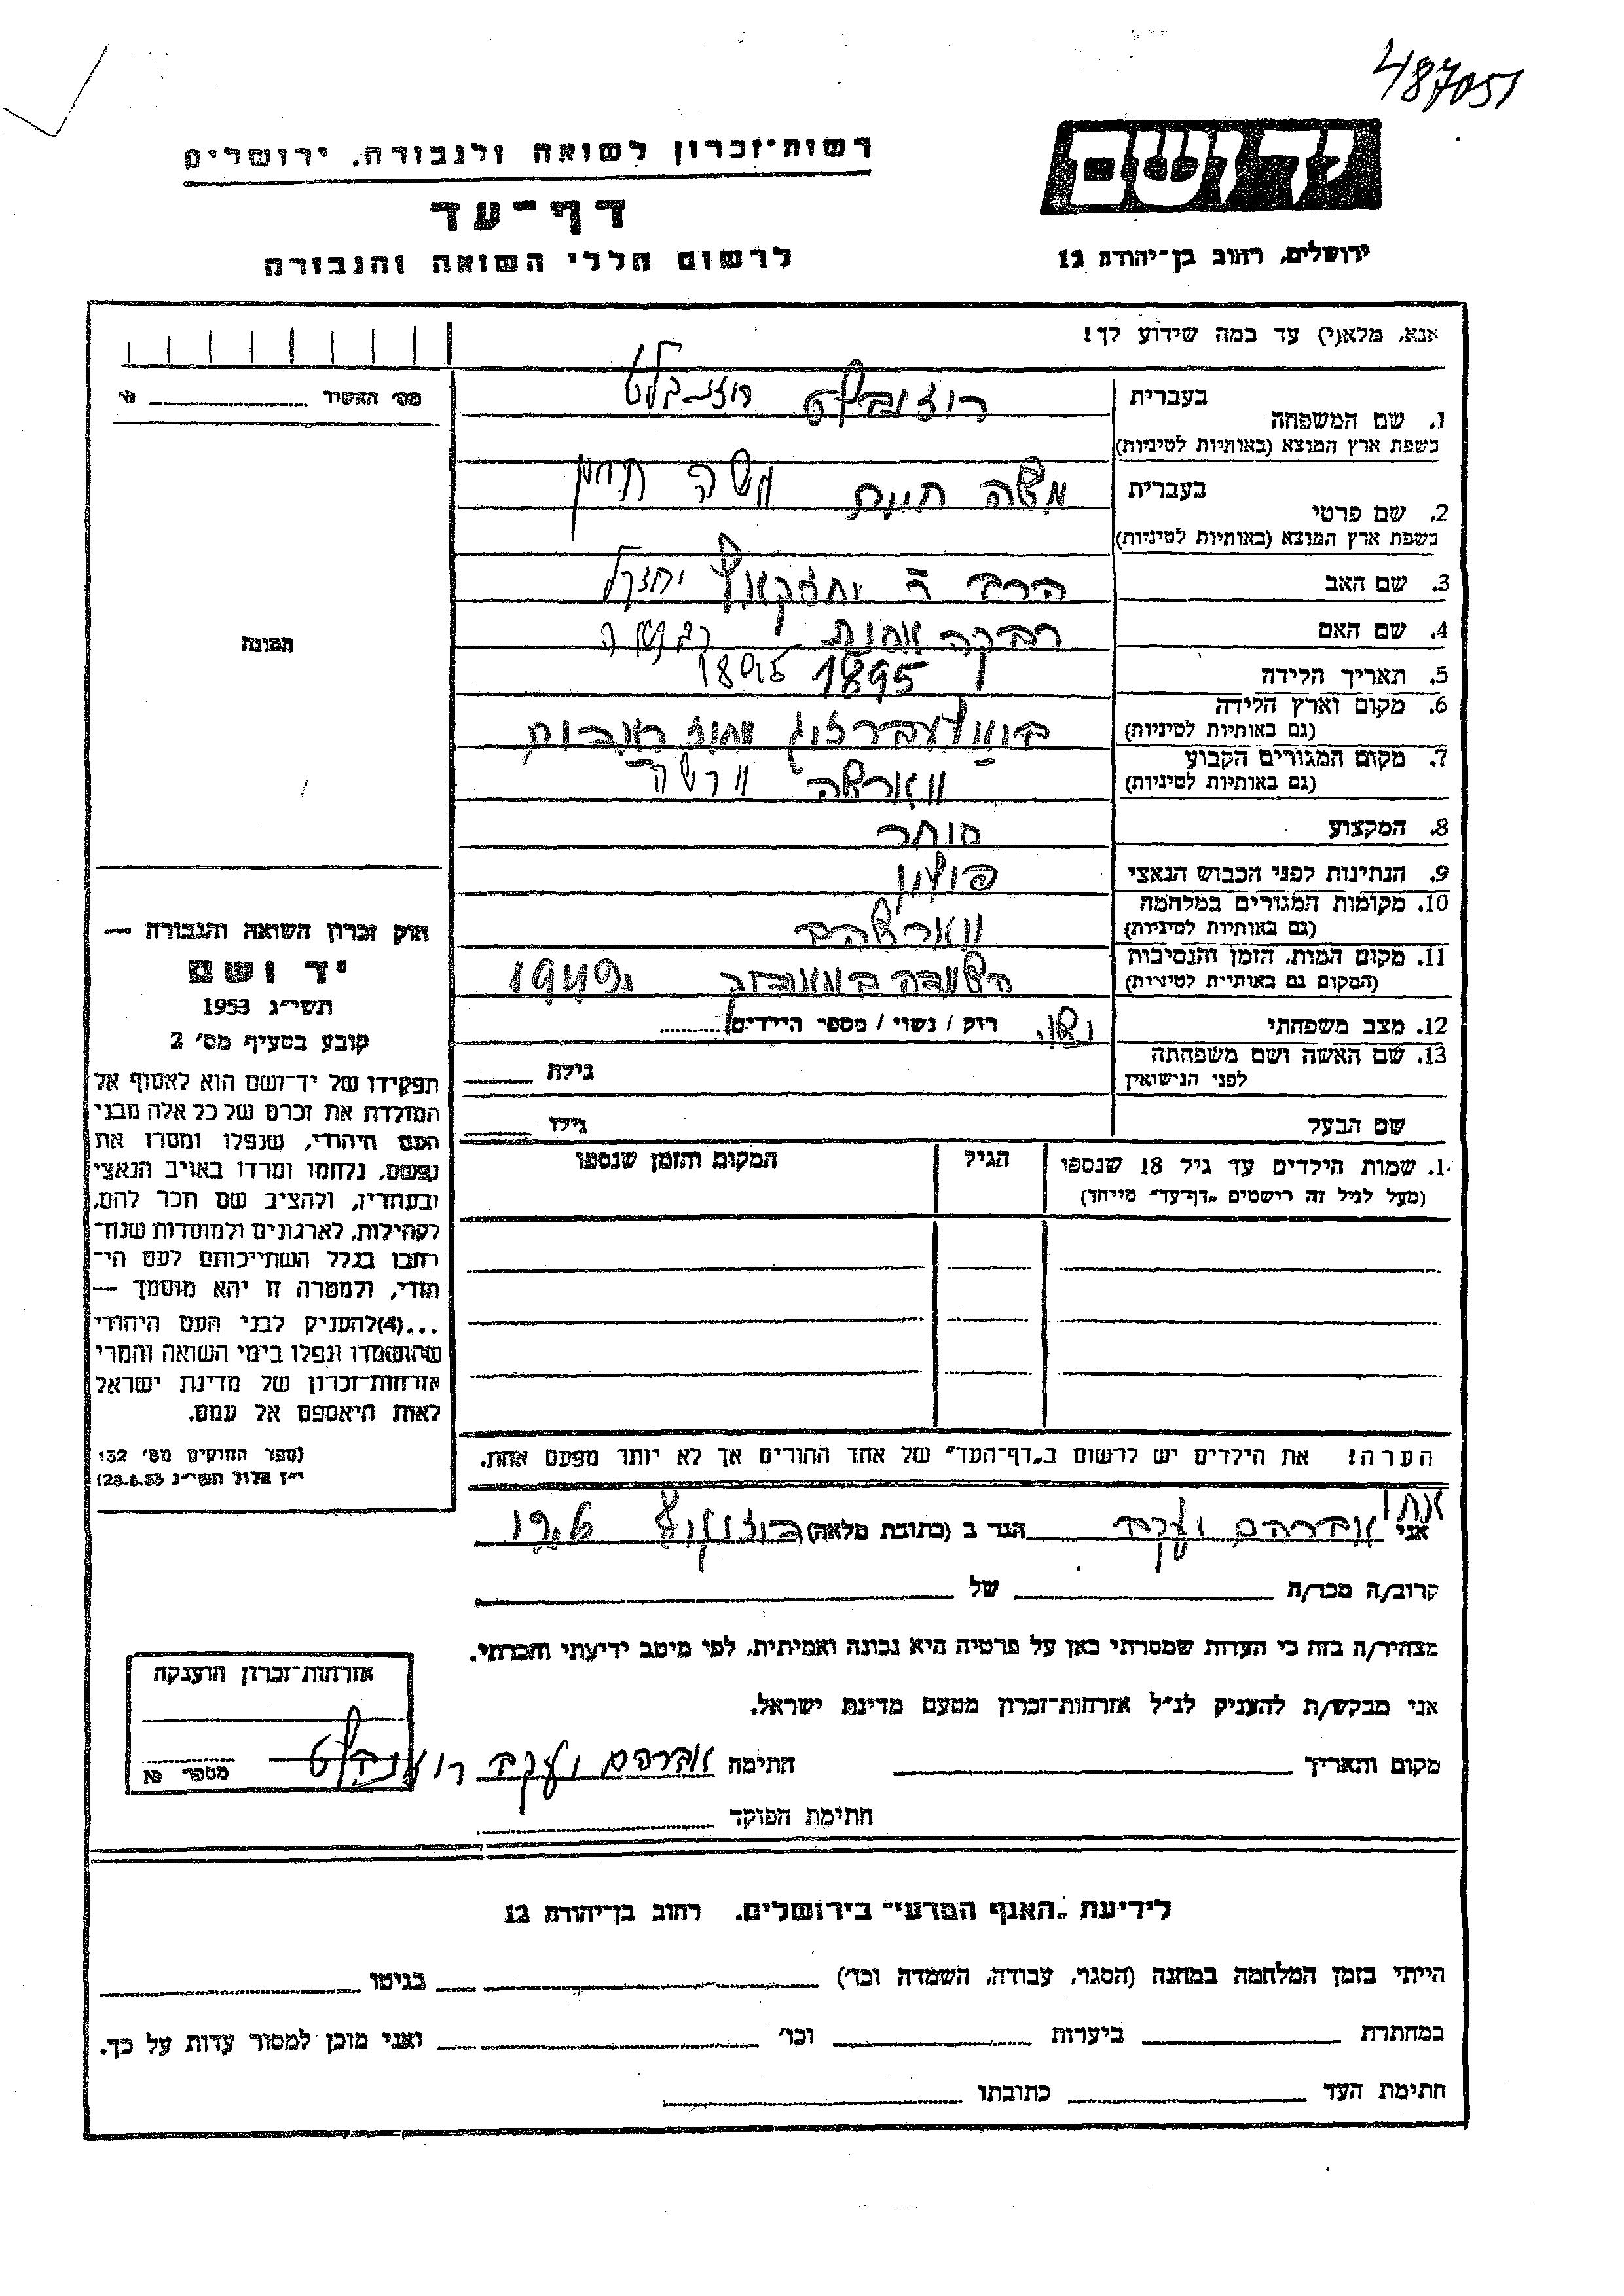 487051
יד ושם
רשות־זכרון לשואה ולגבורה, ירושלים
דף־עד
לרשום חללי השואה והגבורה
ירושלים, רחוב בן־יהודה 12
אנא, מלא(י) עד כמה שידוע לך!
מס' האשיר
1. שם המשפחה
בעברית
רוזנבלט
בשפת ארץ המוצא (באותיות לטיניות)
2. שם פרטי
בעברית
משה חיים
בשפת ארץ המוצא (באותיות לטיניות)
3. שם האב
הרב ר יחזקאל יחזקל
4. שם האם
רבקה
5. תאריך הלידה
1895 1895
6. מקום וארץ הלידה
(גם באותיות לטיניות)
7. מקום המגורים הקבוע
(גם באותיות לטיניות)
ווארשה ורשה
8. המקצוע
סוחר
9. הנתינות לפני הכבוש הנאצי
פולין
10. מקומות המגורים במלחמה
(גם באותיות לטיניות)
ווארשה
11. מקום המות, הזמן והנסיבות
(המקום גם באותיות לטיניות)
12. מצב משפחתי
רוק / נשוי / מספר הילדים
נשוי
13. שם האשה ושם משפחתה
לפני הנישואין
גילה
שם הבעל
גילו
תמונה
חוק זכרון השואה והגבורה —
יד ושם
תשי"ג 1953
קובע בסעיף מס' 2
תפקידו של יד־ושם הוא לאסוף אל
המולדת את זכרם של כל אלה מבני
העם היהודי, שנפלו ומסרו את
נפשם, נלחמו ומרדו באויב הנאצי
ובעוזריו, ולהציב שם וזכר להם,
לקהילות, לארגונים ולמוסדות שנח־
רבו בגלל השתייכותם לעם הי־
הודי, ולמטרה זו יהא מוסמך —
...(4)להעניק לבני העם היהודי
שהושמדו ונפלו בימי השואה והמרי
אזרחות־זכרון של מדינת ישראל
לאות היאספם אל עמם.
(ספר החוקים מס' 132
י"ז אלול תשי"ג 28.8.53)
1. שמות הילדים עד גיל 18 שנספו
(מעל לגיל זה רושמים „דף־עד" מיוחד)
הגיל
המקום והזמן שנספו
הערה! את הילדים יש לרשום ב„דף־העד" של אחד ההורים אך לא יותר מפעם אחת.
אני אברהם יעקב הגר ב (כתובת מלאה)
קרוב/ה מכר/ה של
מצהיר/ה בזה כי העדות שמסרתי כאן על פרטיה היא נכונה ואמיתית, לפי מיטב ידיעתי והכרתי.
אני מבקש/ת להעניק לנ"ל אזרחות־זכרון מטעם מדינת ישראל.
מקום ותאריך חתימה אברהם יעקב רוזנבלט
חתימת הפוקד
אזרחות־זכרון הוענקה
מספר №
לידיעת „האגף המדעי" בירושלים. רחוב בן־יהודה 12
הייתי בזמן המלחמה במחנה (הסגר, עבודה, השמדה וכד') בגיטו
במחתרת ביערות וכו' ואני מוכן למסור עדות על כך.
חתימת העד כתובתו